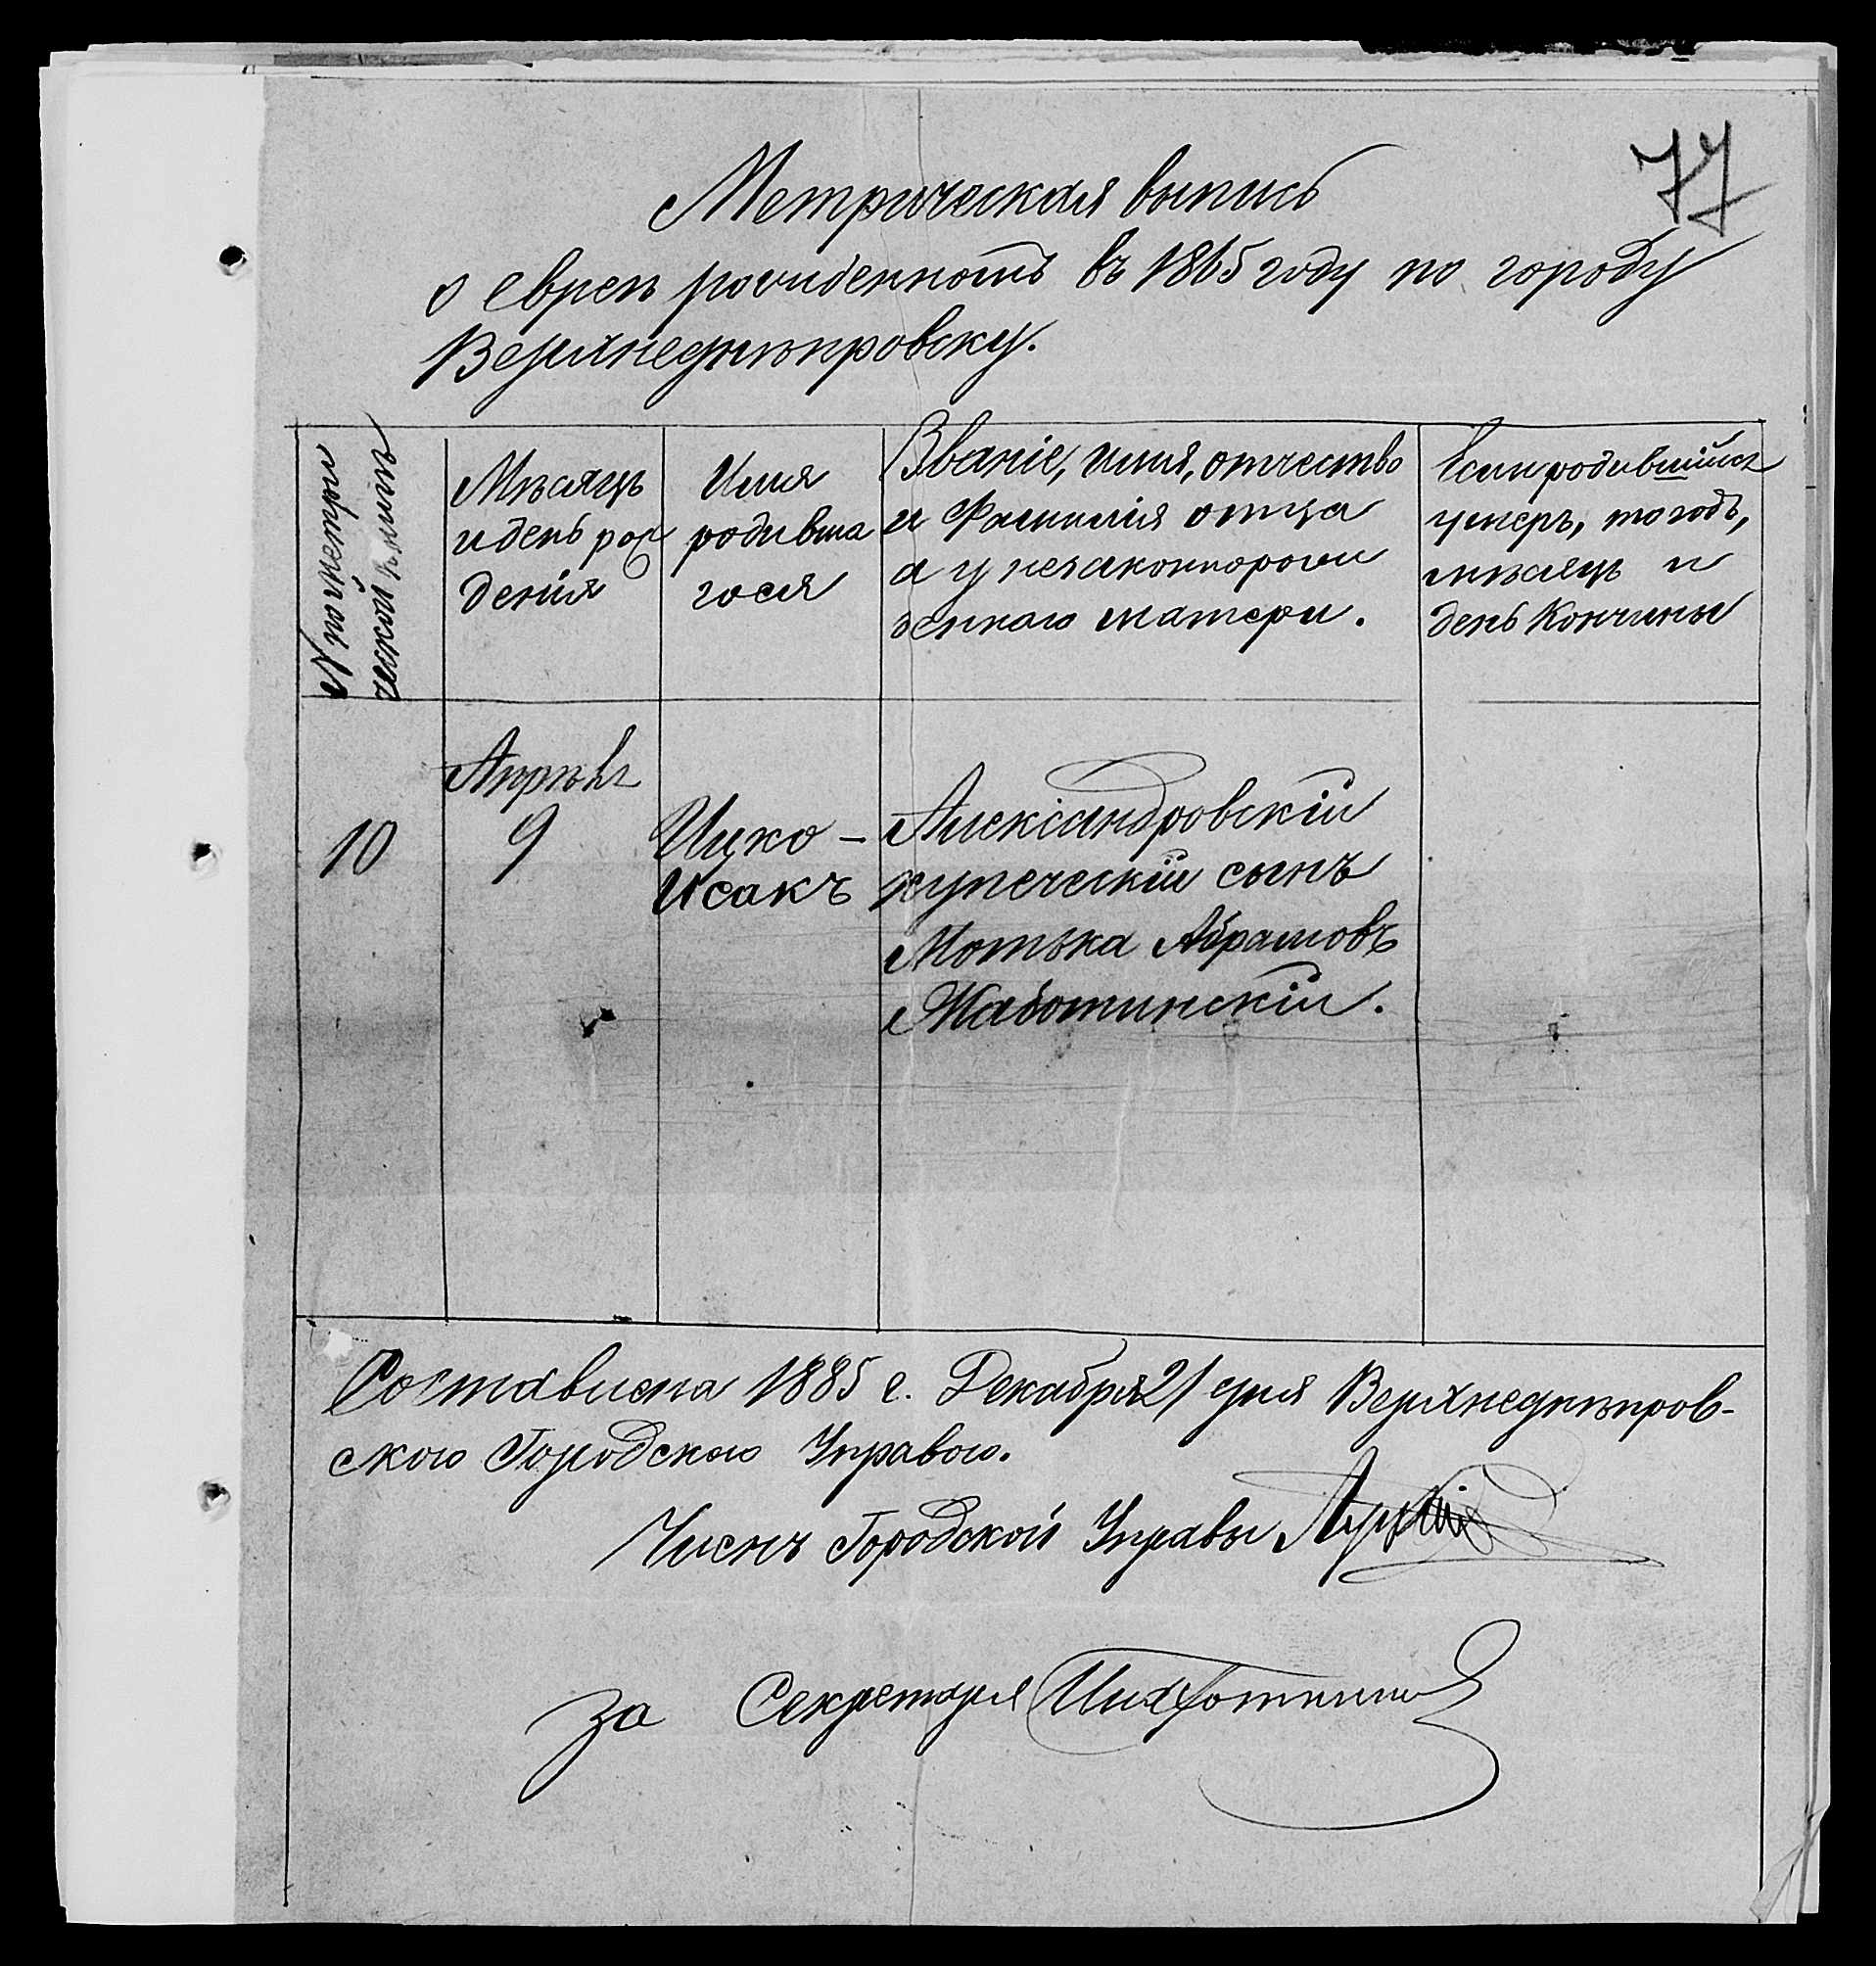 77
Метрическая выпись
о евреѣ рожденномъ въ 1865 году по городу
Верхнеднѣпровску.
№ по метри
ческой книгѣ
Мѣсяцъ
и день рож
денія
Имя
родивша
гося
Званіе, имя, отчество
и Фамилія отца
а у незаконнорож
деннаго матери.
Если родившійся
умеръ, то годъ,
мѣсяцъ и
день Кончины
10
Апрѣля
9
Ицко-
Исакъ
Александровскій
купеческій сынъ
Мотька Абрамовъ
Жаботинскій.
Составлена 1885 г. Декабря 21 дня Верхнеднѣпров-
скою Городскою Управою.
Членъ Городской Управы
За Секретаря